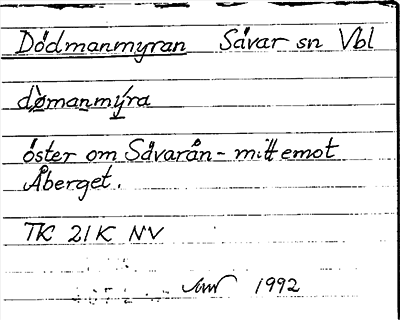 Dödmanmyran Sävar sn Vbl
dø̀manmýra
öster om Sävarån - mitt emot
Åberget.
TK 21K NV
1992